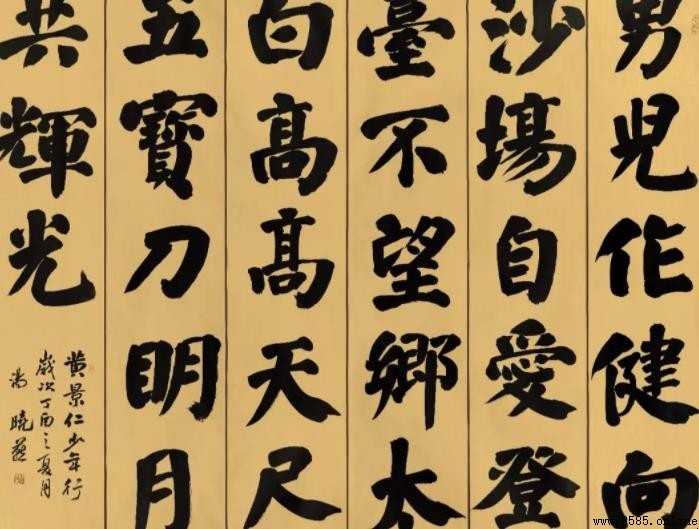 男兒作健向
沙場自愛登
臺不望鄉太
白髙髙天尺
五寶刀明月
共輝光
黄景仁少年行
歲次丁酉之夏月
湯曉